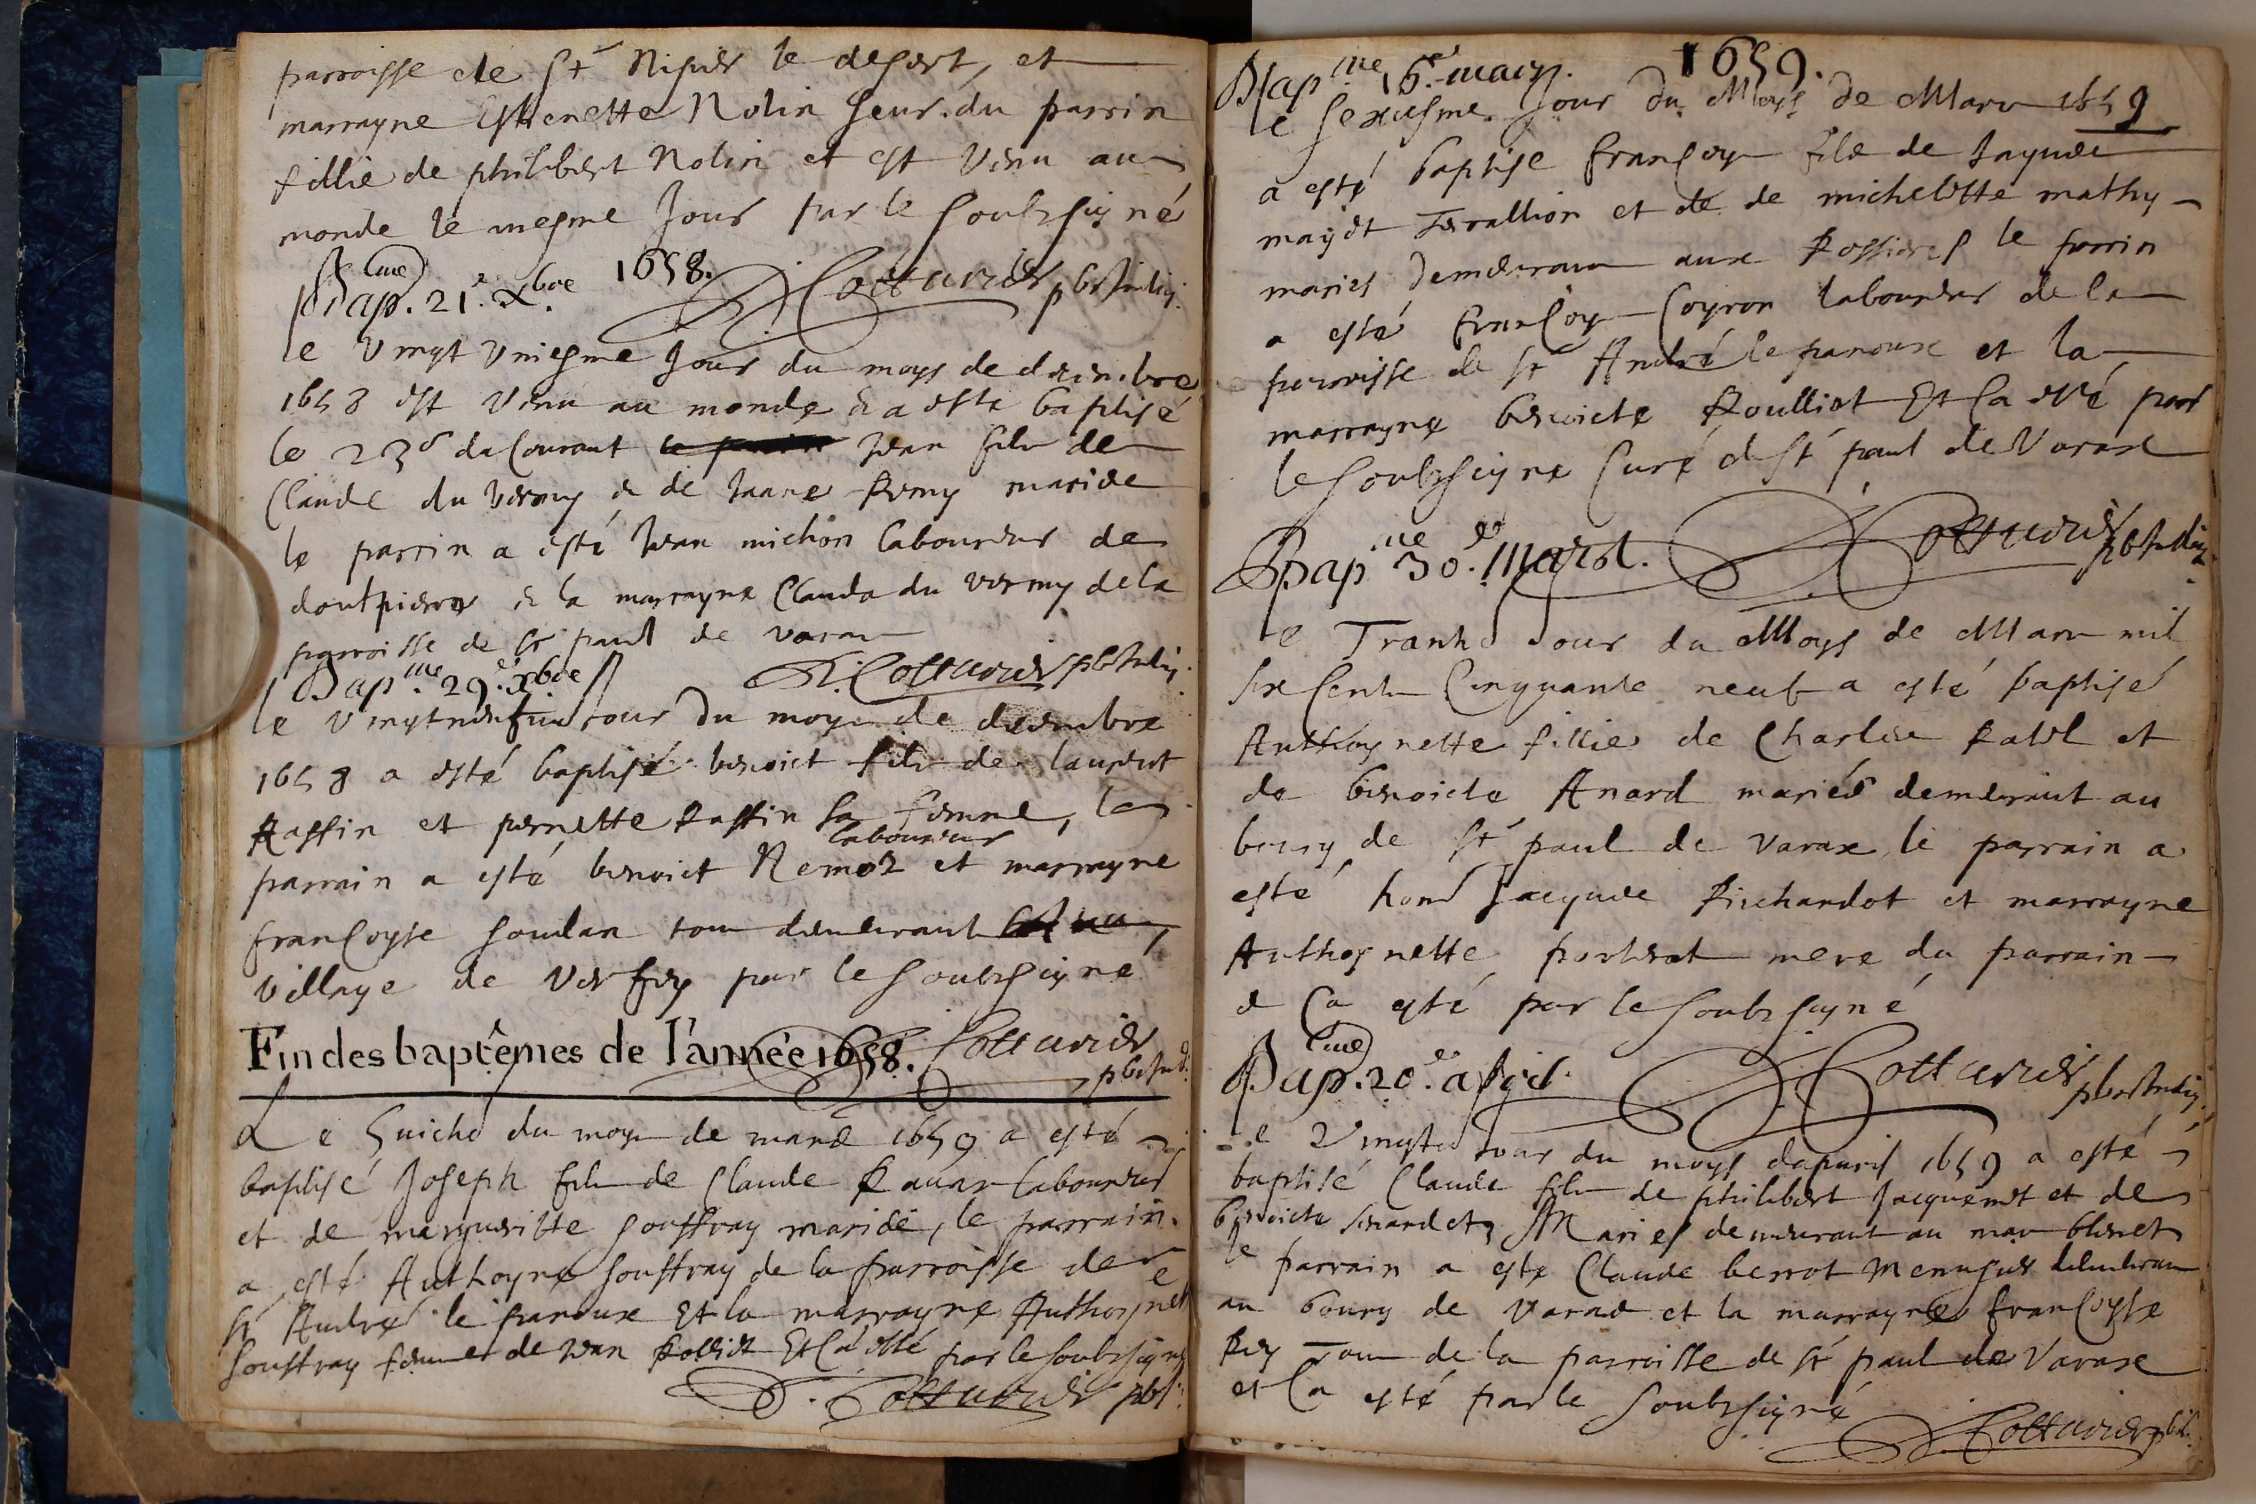 parroisse de St Nisier le desert, et
marrayne Esthenette Nolin seur du parrin
fillie de philibert Nolin et est venu au
monde le mesme Jour par le soubzsigné
Bap.me 21.e Xbre 1658. Cottarier pbr Indig.
le vingt uniesme Jour du moys de decembre
1658 est venu au monde & a este baptisé
le 23e du Courant Jean filz de
Claude du vermy & de Janne Remy maries
le parrin a esté Jean michon laboureur de
dontpierre & la marrayne Clauda du vermy de la
parroisse de St paul de varax
Bap.me 29.e Xbre Cottarier pbr Indig.
le vingt neufvie Jour du moys de decembre
1658 a esté baptisé benoict filz de laurent
Raffin et pernette Raffin sa femme, le
laboureur
parrain a esté benoict Nemoz et marrayne
françoyse goudan tous demeurant
village de Verfey par le soubzsigné
Fin des baptêmes de l'année 1658. Cottarier
pbr Ind.
Le huicte du moys de mars 1659 a esté
baptisé Joseph filz de Claude Ravat laboureur
et de margueritte souffray maries, le parrain
a esté Anthoyne souffray de la parroisse de
St André le panoux Et la marrayne Anthoynette
souffray femme de Jean Rolliet Et ca esté par le soubzsigné
Cottarier pbr
1659.
Bap.me 16.e mars.
le sexiesme Jour du Moys de Mars 1659
a esté baptise françoys filz de Jaques
mayet Terallion et de de michelette mathy
maries demeurant aux Rossieres le parrin
a esté françoys Coyron laboureur de la
parroisse de St André le panoux et la
marrayne benoicte Roulliet Et ca esté par
le soubzsigne Curé de St paul de Varax
Bap.me 30.e Mars. Cottarier
pbr Indig.
le Trante Jour du Moys de Mars mil
six cents Cinquante neuf a esté baptisé
Anthoynette fillie de Charles Ravel et
de benoicte Anard mariés demeurant au
bourg de St paul de varax le parrain a
esté hon Jacques Richardot et marrayne
Anthoynette porterat mere du parrain
& ca esté par le soubzsigné
Bap.me 20.e apvril. Cottarier pbr Indig.
le Vingte Jour du moys dapvril 1659 a esté
baptisé Claude filz de philibert Jacquemet et de
benoicte Maries demeurant au mas blenet
le parrain a este Claude berrot Menusier demeurant
au bourg de varax et la marrayne françoyse
Rey Tous de la parroisse de St paul de Varax
et ca esté par le soubzsigné
Cottarier pbr.